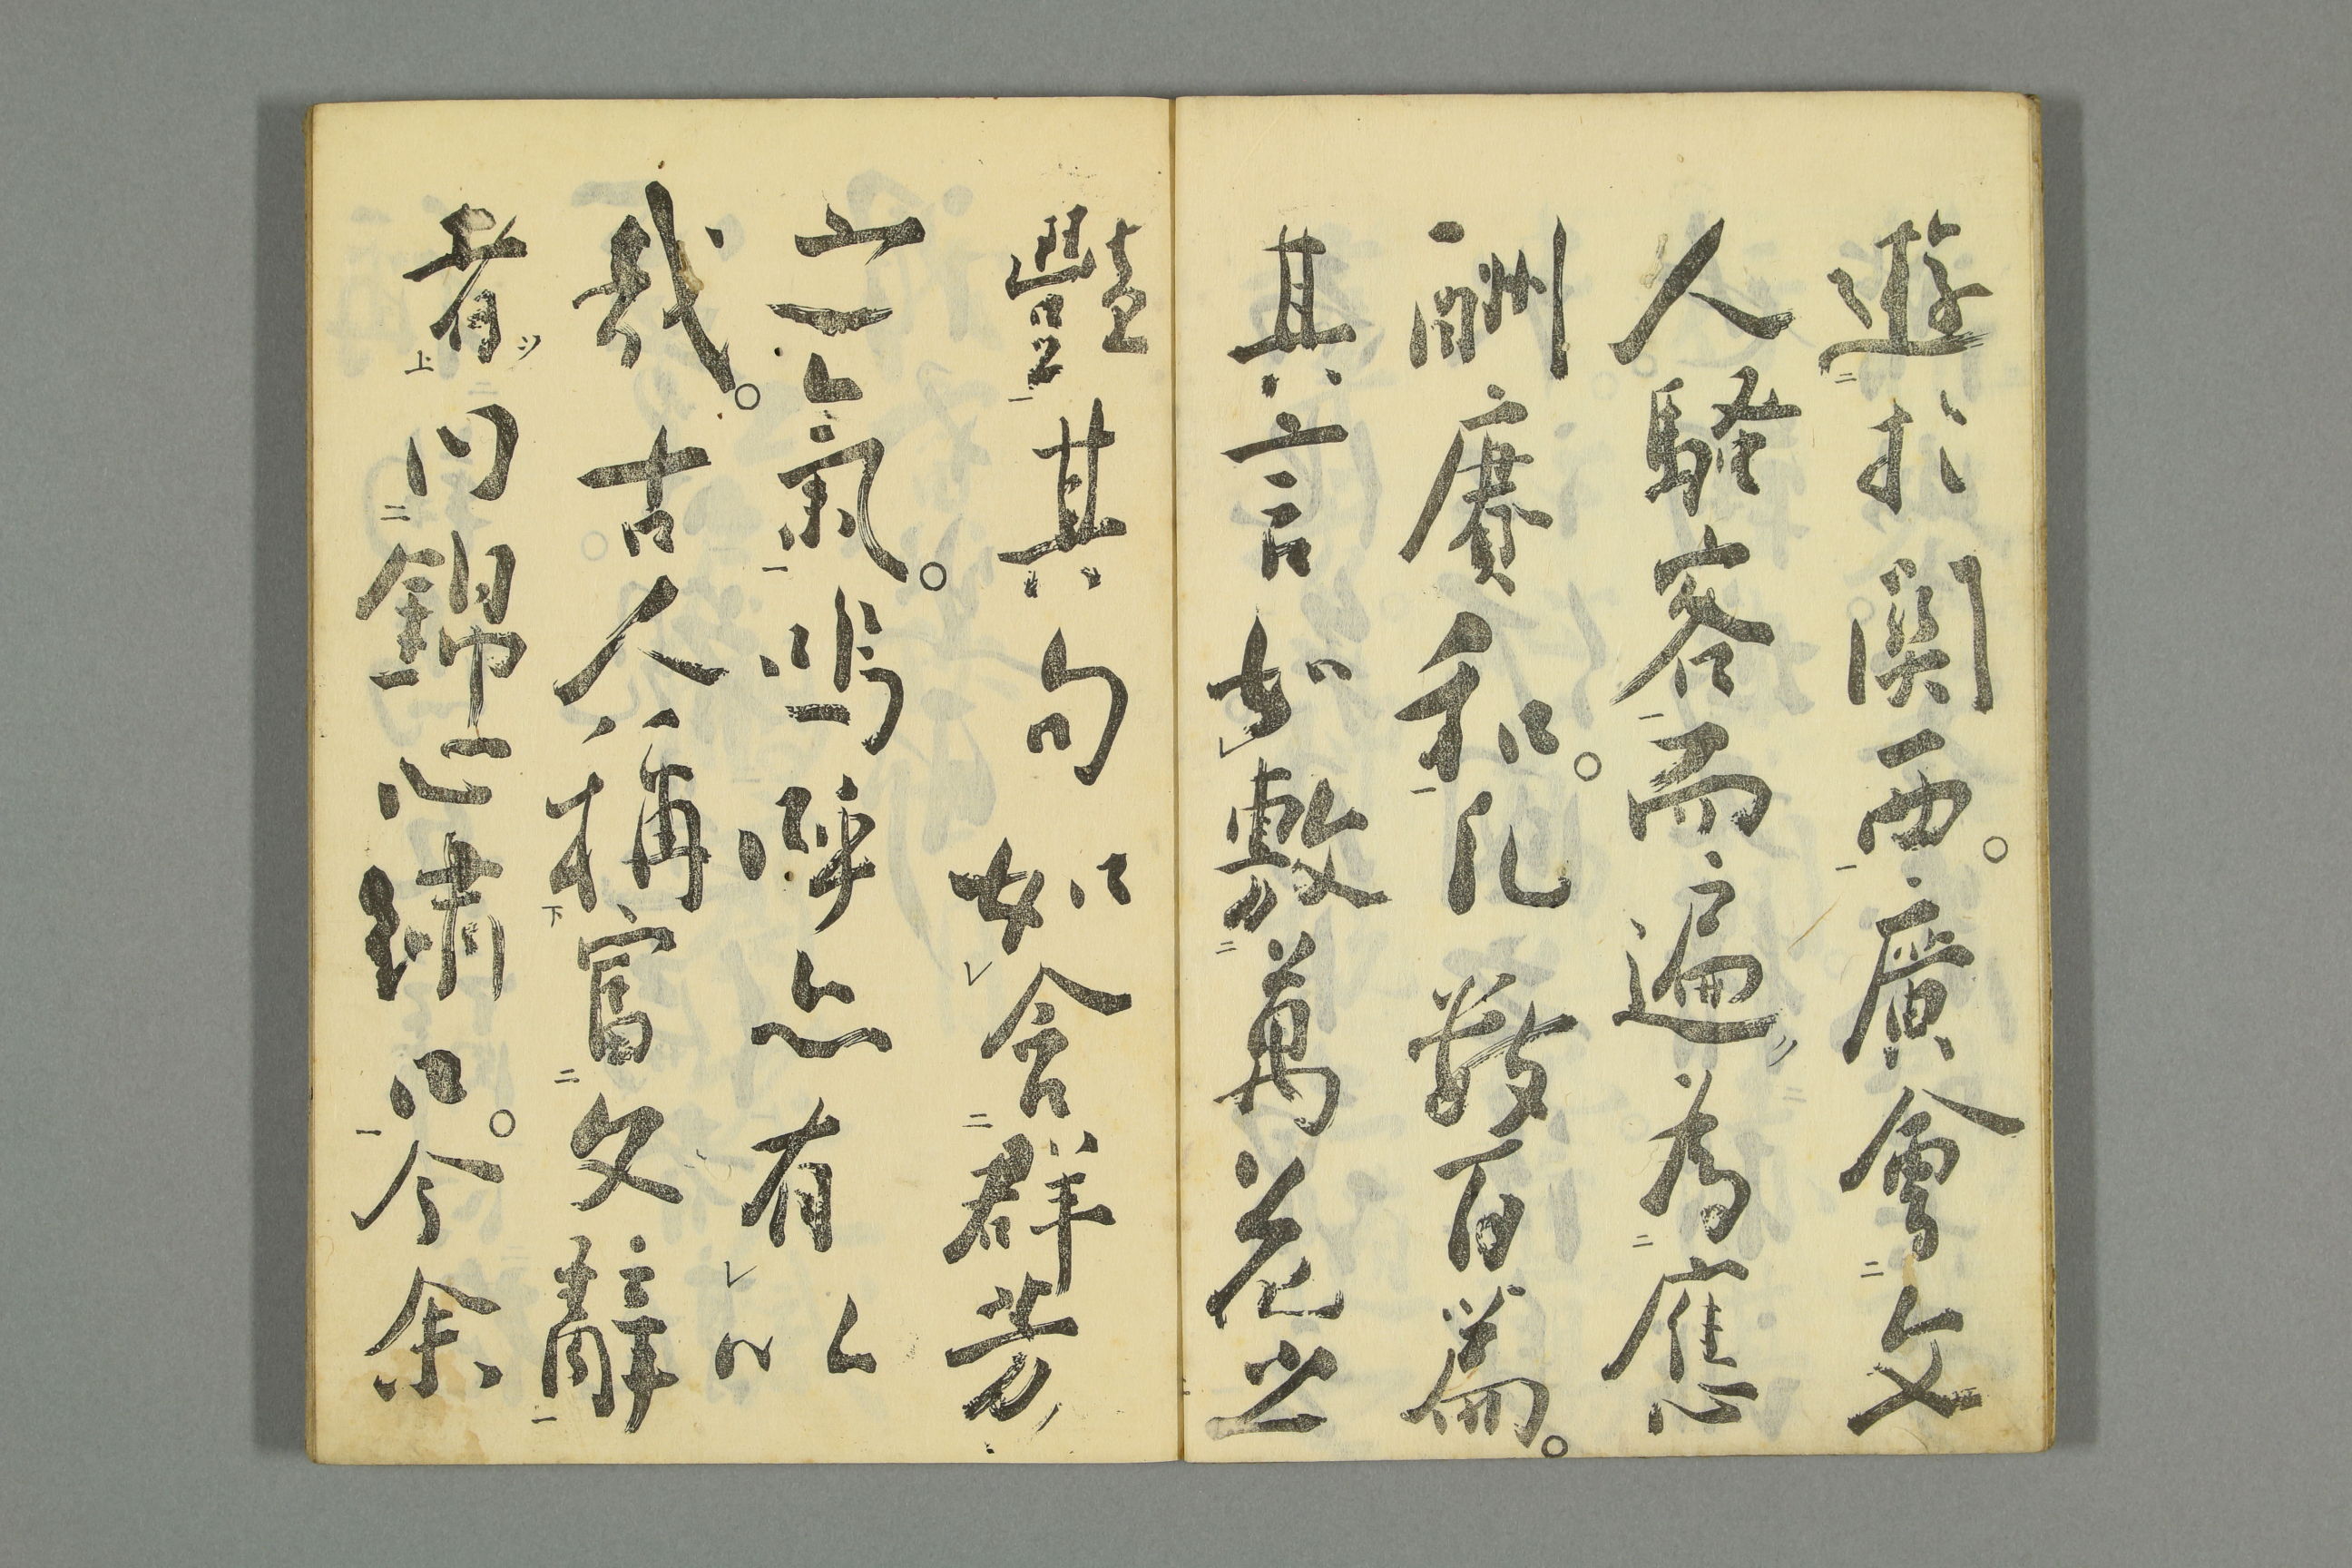 遊於関西。廣會文
人騒客而遍為應
酬賡和。凡数百篇。
其言如敷萬花之
豔其句如含群芳
之氣。嗚呼亦有以
哉。古人稱富文辭
者曰錦心繡口。今余